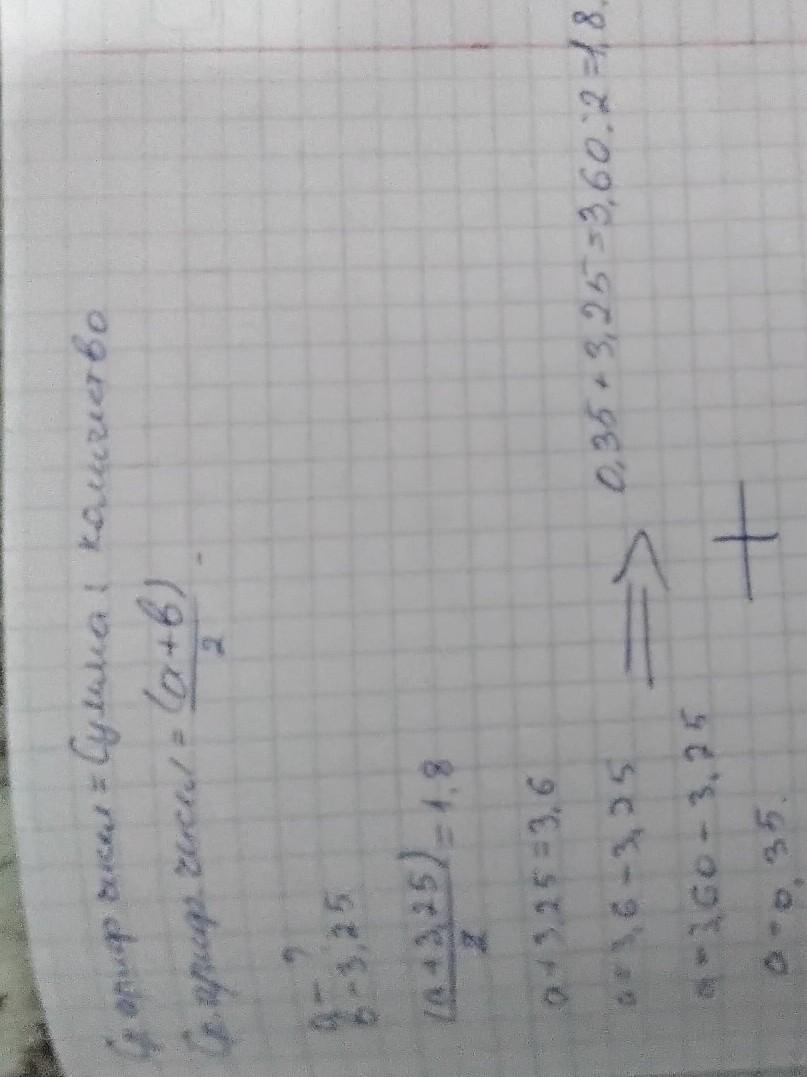 Ср. ариф чисел = Сумма : количество
Ср. ариф чисел = (a+b)/2
a - ?
b - 3,25
(a+3,25)/2 = 1,8
a+3,25=3,6
a=3,6-3,25 => 0,35+3,25=3,60:2=1,8.
a=3,60-3,25
a=0,35. +